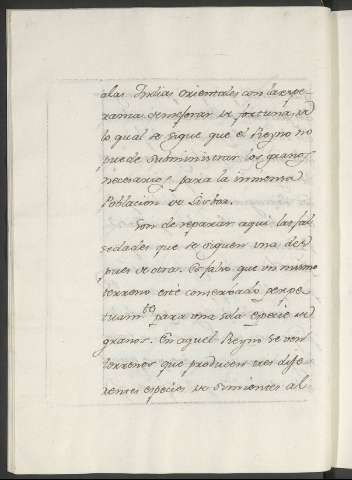 alas Indias orientales con la espe-
ranza de mejorar de fortuna, de
lo qual se sigue que el Reyno no
puede subministrar los granos
necesarios para la inmensa
Poblacion de Lisboa.
Son de reparar aqui las fal-
sedades que se siguen una des-
pues de otra. Es falso que un mismo
terreno esté consagrado perpe-
tuam.te para una sola especie de
granos. En aquel Reyno se ven
terrenos que producen tres dife-
rentes especies de simientes al-